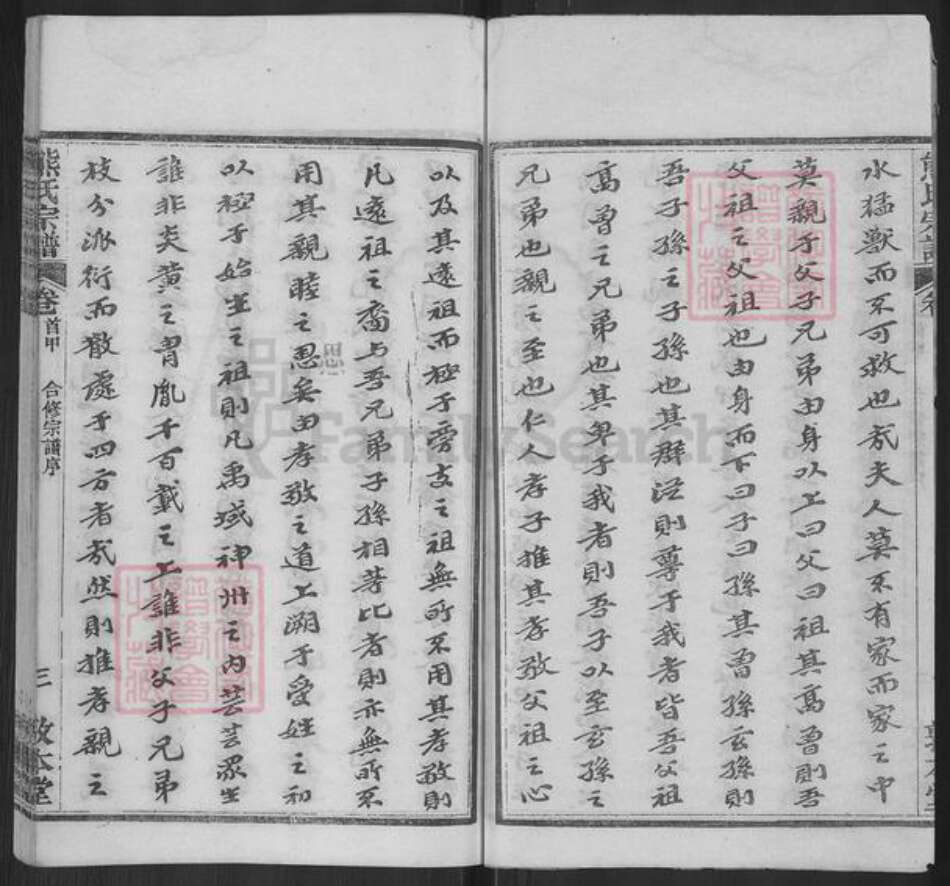 水猛獸而不可救也哉夫人莫不有家而家之中
莫親于父子兄弟由身以上曰父曰祖其高曾則吾
父祖之父祖也由身而下曰子曰孫其曾孫玄孫則
吾子孫之子孫也其群從則尊于我者皆吾父祖
高曾之兄弟也其卑于我者則吾子以至玄孫之
兄弟也親之至也仁人孝子推其孝敬父祖之心
以及其遠祖而極于旁支之祖無所不用其孝敬則
凡遠祖之裔与吾兄弟子孫相等比者則亦無所不
用其親睦之恩矣由孝敬之道上溯于受姓之初
以極于始生之祖則凡禹域神州之内芸芸眾生
誰非炎黃之胄胤千百載之上誰非父子兄弟
枝分派衍而散處于四方者哉然則推孝親之
熊氏宗譜 卷首甲 合修宗譜序 三 敦本堂
FamilySearch